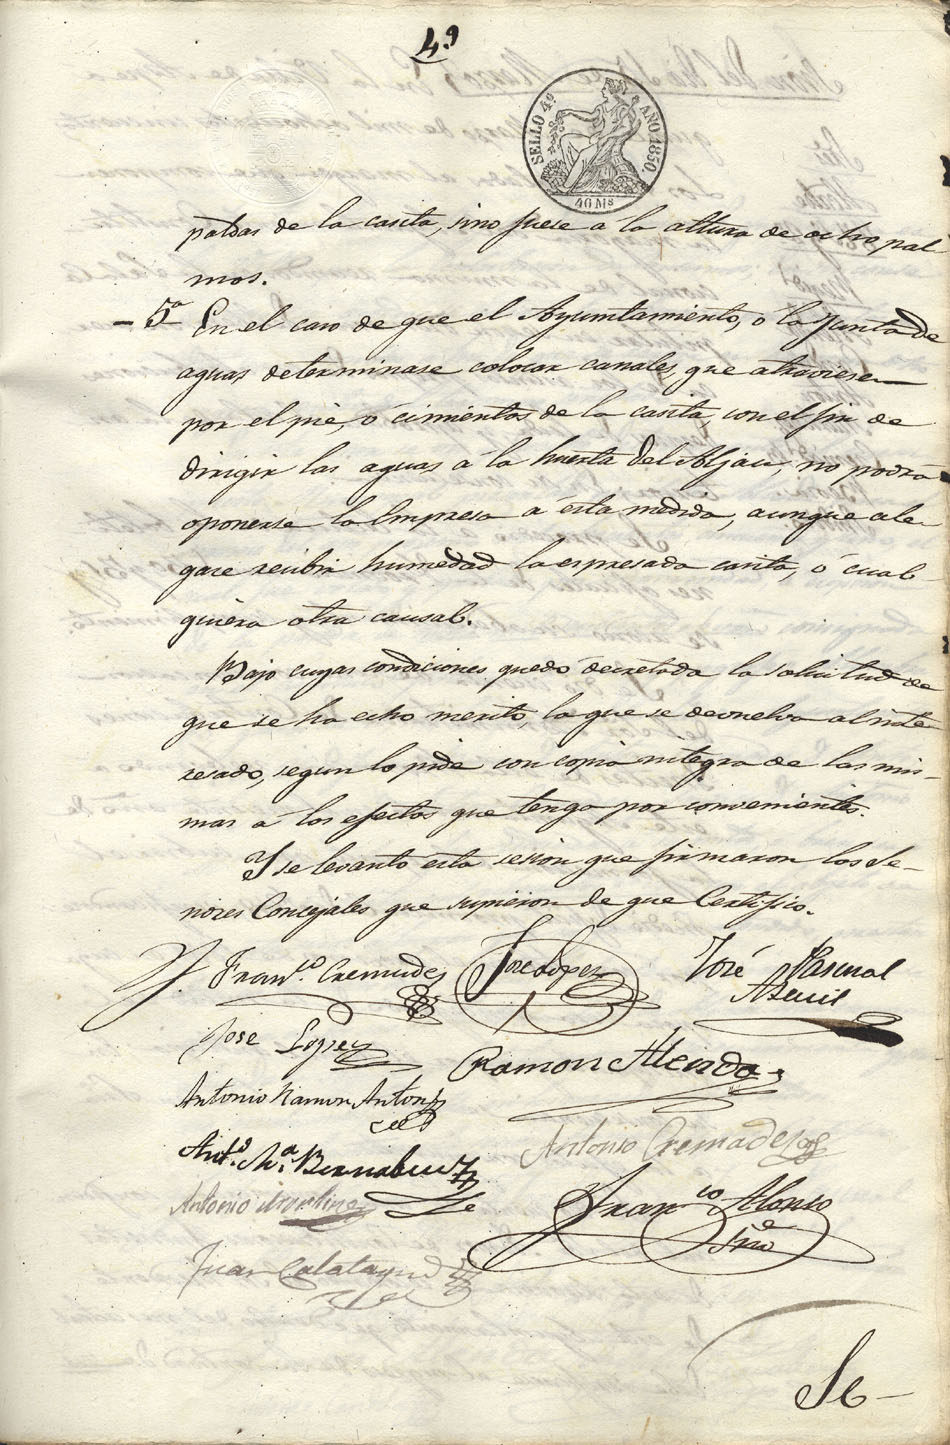 4.º
SELLO 4º AÑO 1850.
40 Ms
paldas de la casita, sino fuese á la altura de ocho pal-
mos.
- 5ª En el caso de que el Ayuntamiento, o la Junta de
aguas determinase colocar canales, que atraviesen
por el pie, ó cimientos de la casita, con el fin de
dirigir las aguas á la huerta del Aljau, no podrá
oponerse la Empresa á esta medida, aunque ale-
gase recibir humedad la espresada casita, ó cual-
quiera otra causal.
Bajo cuyas condiciones quedó decretada la solicitud de
que se ha echo merito, la que se devuelva al inte-
resado, segun lo pide con copia integra de las mis-
mas a los efectos que tenga por convenientes.
Y se levantó esta sesion que firmaron los Se-
ñores Concejales que supieron de que Certifico.
Franco. Cremades
Jose Lopez
José Pascual
Jose Lopez
Ramon Alenda
Antonio Ramon Anton
Antº. Mª. Bernabeu
Antonio Cremades
Antonio
Franco Alonso
Srio
Juan Calatayud
Se-